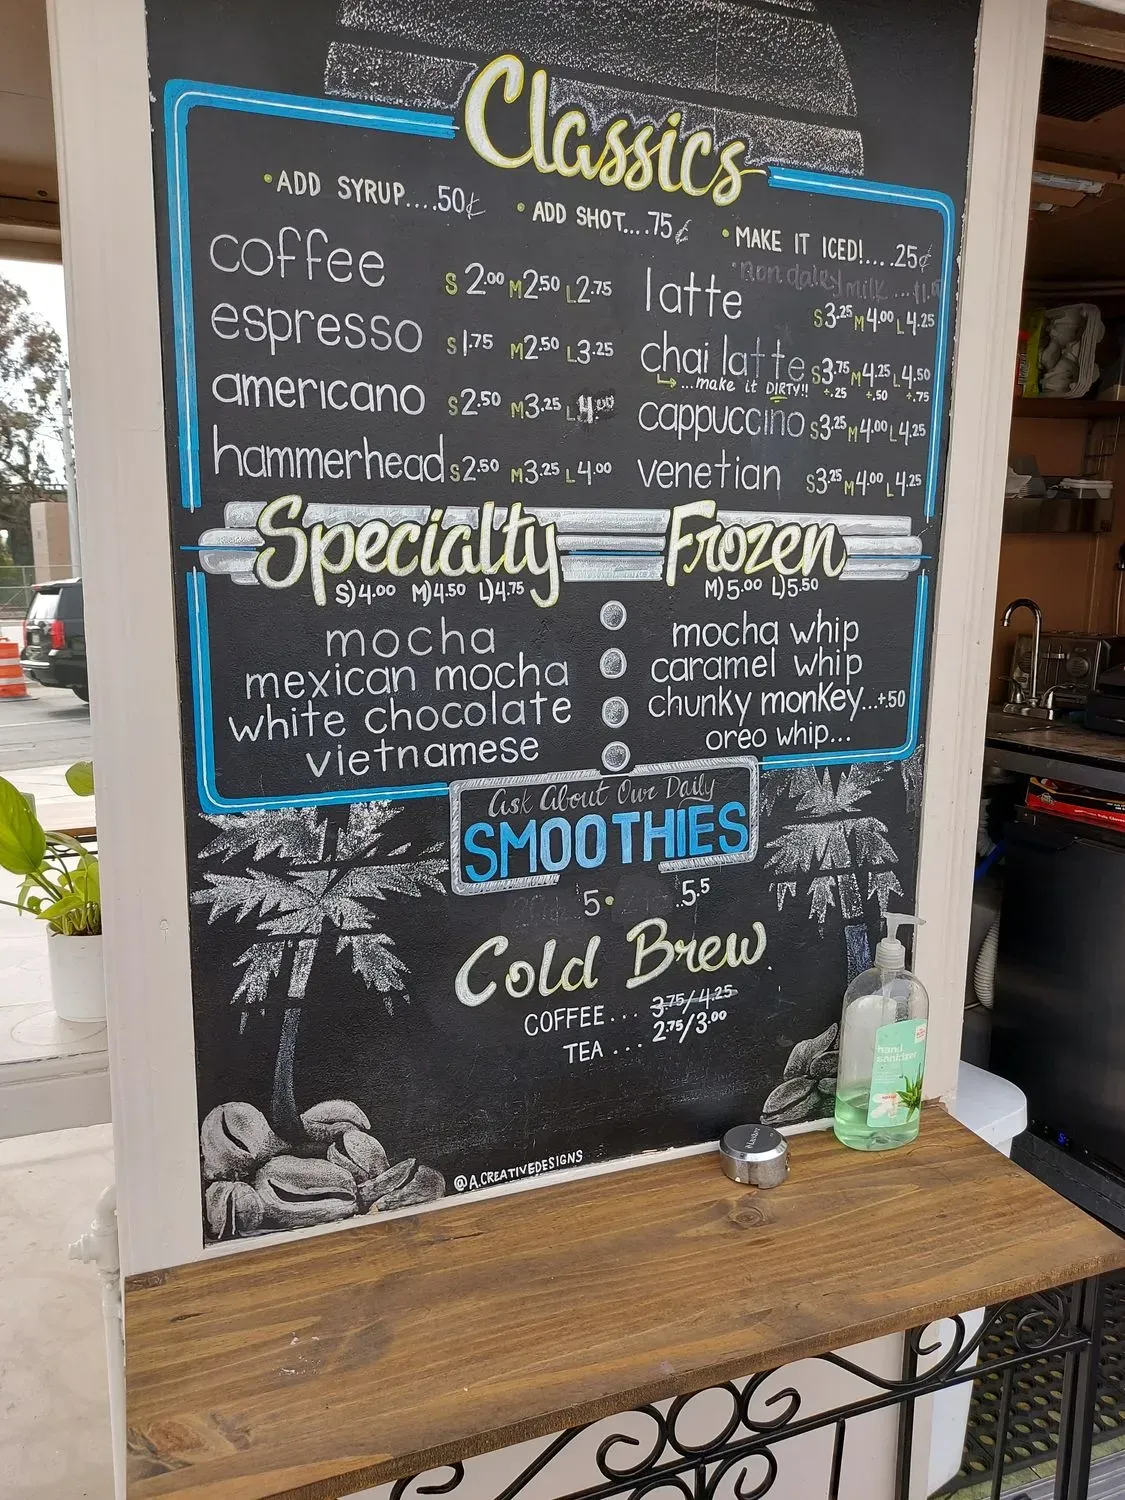 Classics
• ADD SYRUP....50¢ • ADD SHOT....75¢ • MAKE IT ICED!.....25¢
non dairy milk ...
coffee S 2.00 M 2.50 L 2.75
espresso S 1.75 M 2.50 L 3.25
americano S 2.50 M 3.25 L 4.00
hammerhead S 2.50 M 3.25 L 4.00
latte S 3.25 M 4.00 L 4.25
chai latte S 3.75 M 4.25 L 4.50
...make it DIRTY!! +.25 +.50 +.75
cappuccino S 3.25 M 4.00 L 4.25
venetian S 3.25 M 4.00 L 4.25
Specialty
S) 4.00 M) 4.50 L) 4.75
mocha
mexican mocha
white chocolate
vietnamese
Frozen
M) 5.00 L) 5.50
mocha whip
caramel whip
chunky monkey...+.50
oreo whip...
Ask About Our Daily
SMOOTHIES
5. .5.5
Cold Brew
COFFEE... 3.75/4.25
TEA... 2.75/3.00
@A.CREATIVEDESIGNS
hand
sanitizer